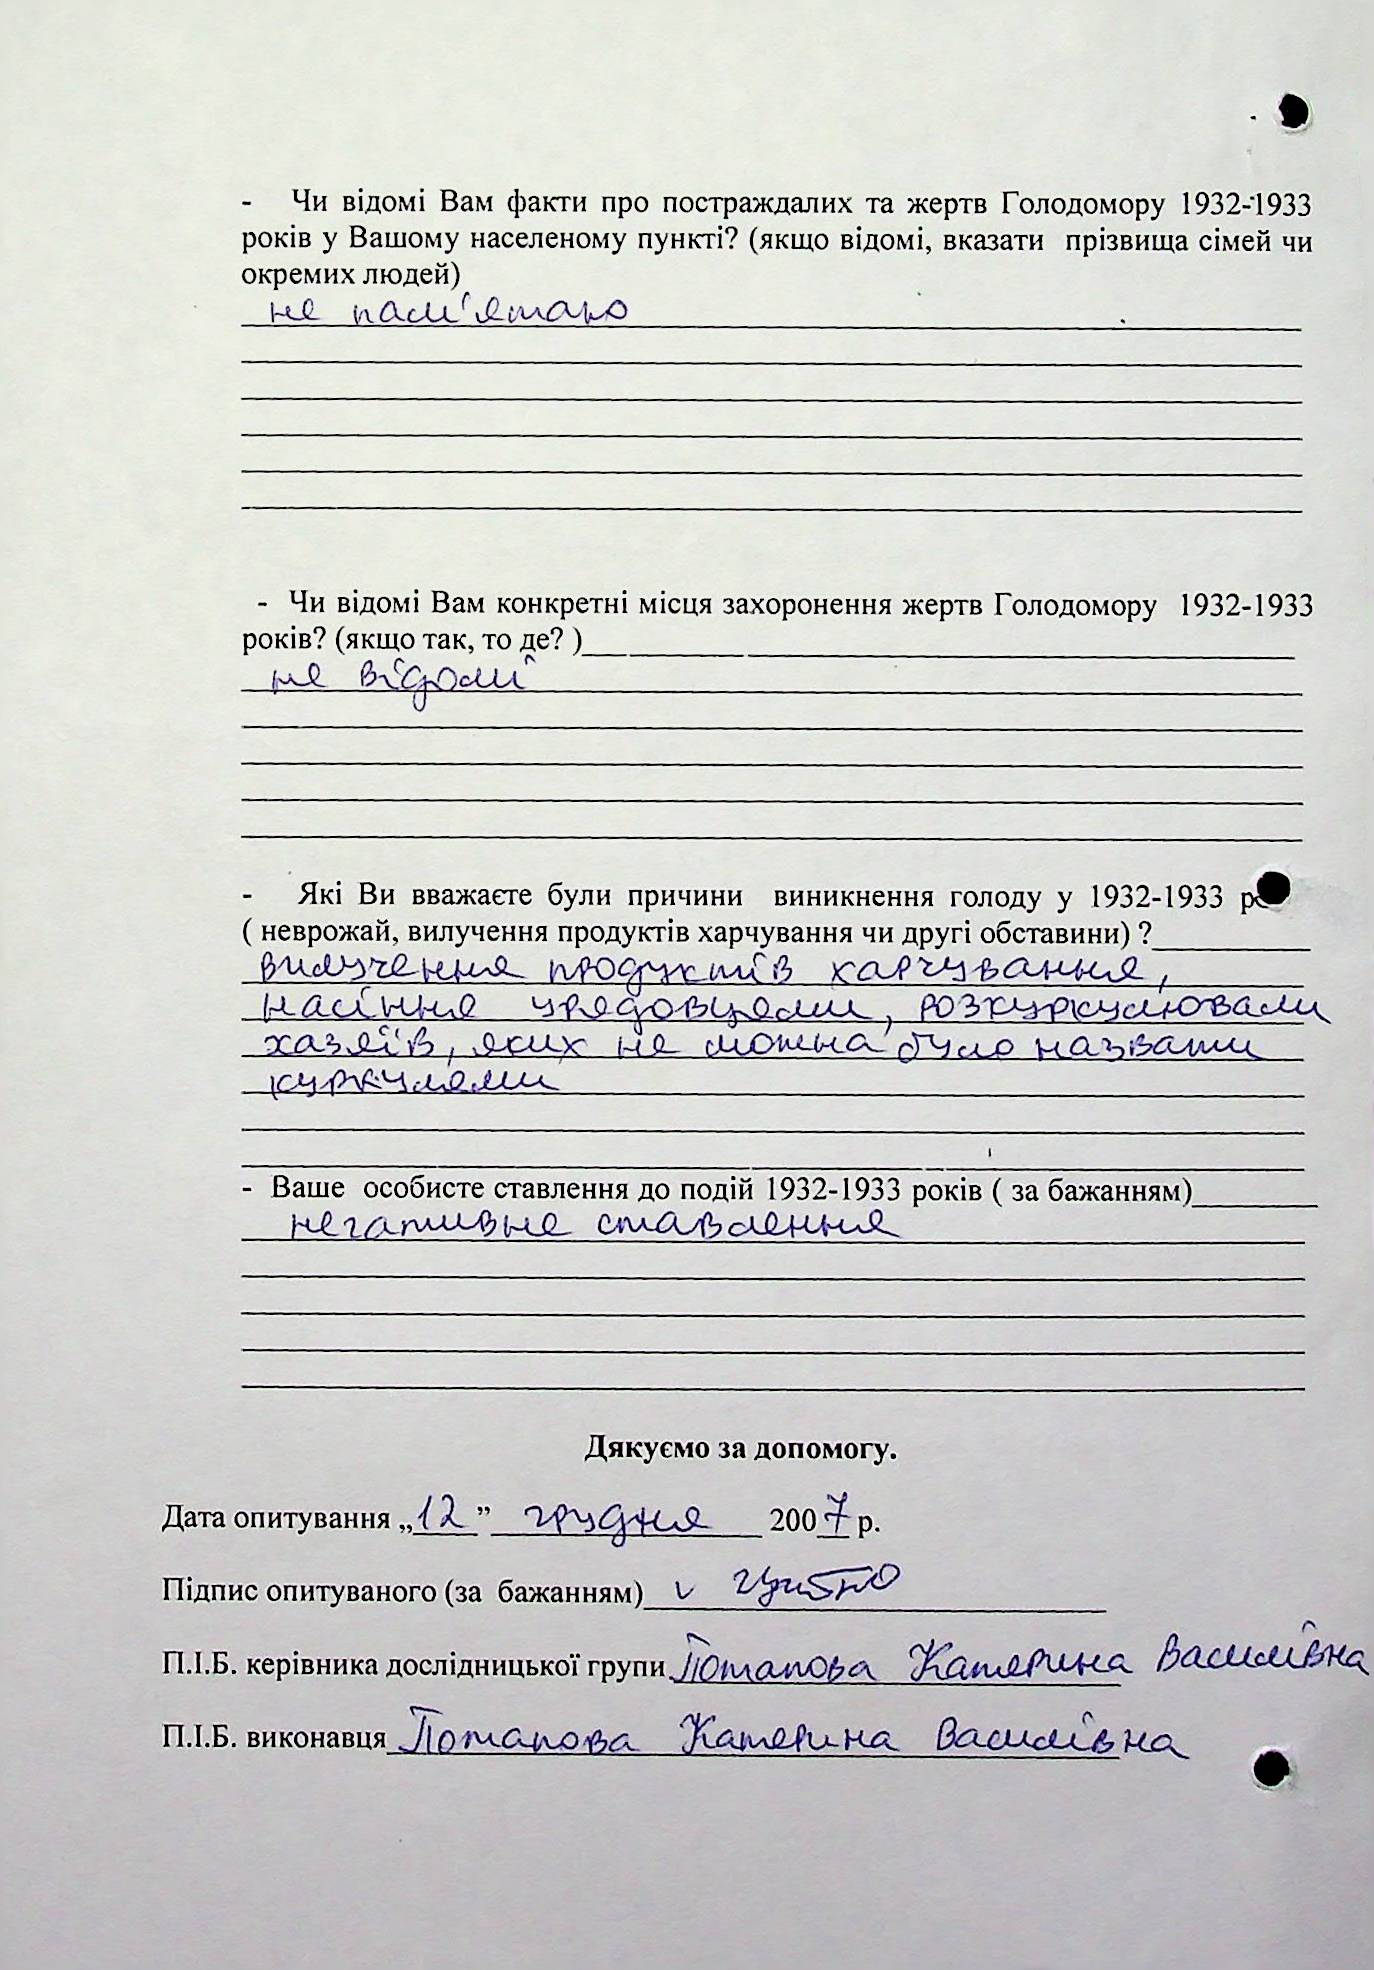 - Чи відомі Вам факти про постраждалих та жертв Голодомору 1932-1933
років у Вашому населеному пункті? (якщо відомі, вказати прізвища сімей чи
окремих людей)
не пам'ятаю
- Чи відомі Вам конкретні місця захоронення жертв Голодомору 1932-1933
років? (якщо так, то де? )
не відомі
- Які Ви вважаєте були причини виникнення голоду у 1932-1933
( неврожай, вилучення продуктів харчування чи другі обставини) ?
вилучення продуктів харчування,
насіння урядовцями, розкуркулювали
хазяїв, яких не можна було назвати
куркулями
- Ваше особисте ставлення до подій 1932-1933 років ( за бажанням)
негативне ставлення
Дякуємо за допомогу.
Дата опитування „12” грудня 2007 р.
Підпис опитуваного (за бажанням) v
П.І.Б. керівника дослідницької групи Потапова Катерина Василівна
П.І.Б. виконавця Потапова Катерина Василівна